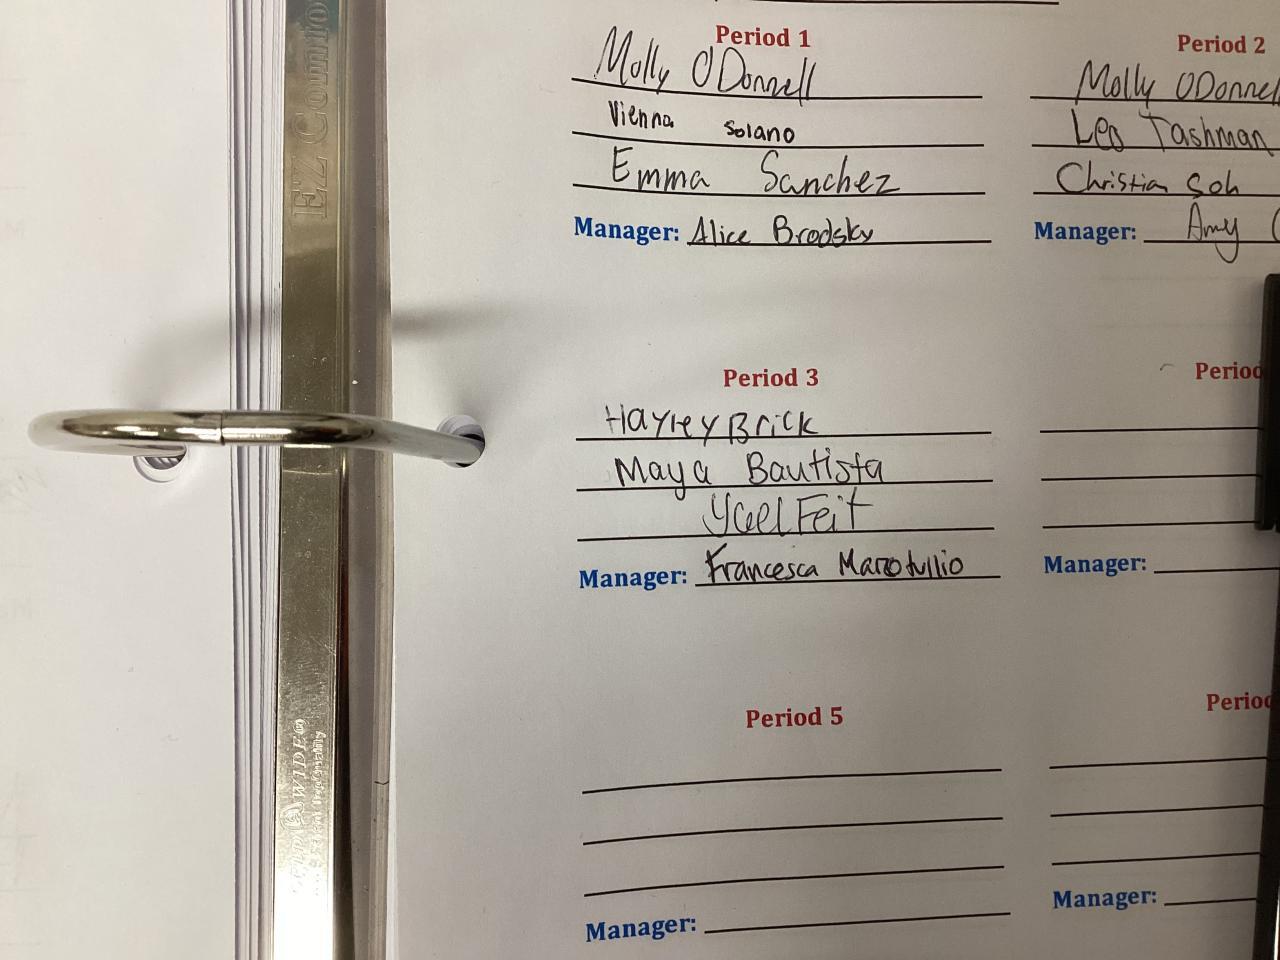 EZ Comfo
Period 1
Molly O'Donnell
Vienna Solano
Emma Sanchez
Manager: Alice Brodsky
Period 2
Molly ODonnel
Leo Tashman
Christian Soh
Manager: Amy
Period 3
Hayley Brick
Maya Bautista
Yael Feit
Manager: Francesca Marotullio
Period
Manager:
Period 5
Manager:
Perio
Manager:
WIDE